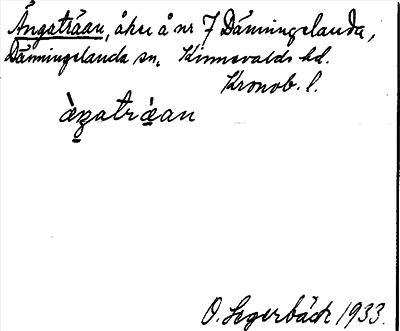 Ängaträan, åker å nr 7 Dänningelanda,
Dänningelanda sn, Kinnevalds hd.
Kronob. l.
O. Segerbäck 1933.